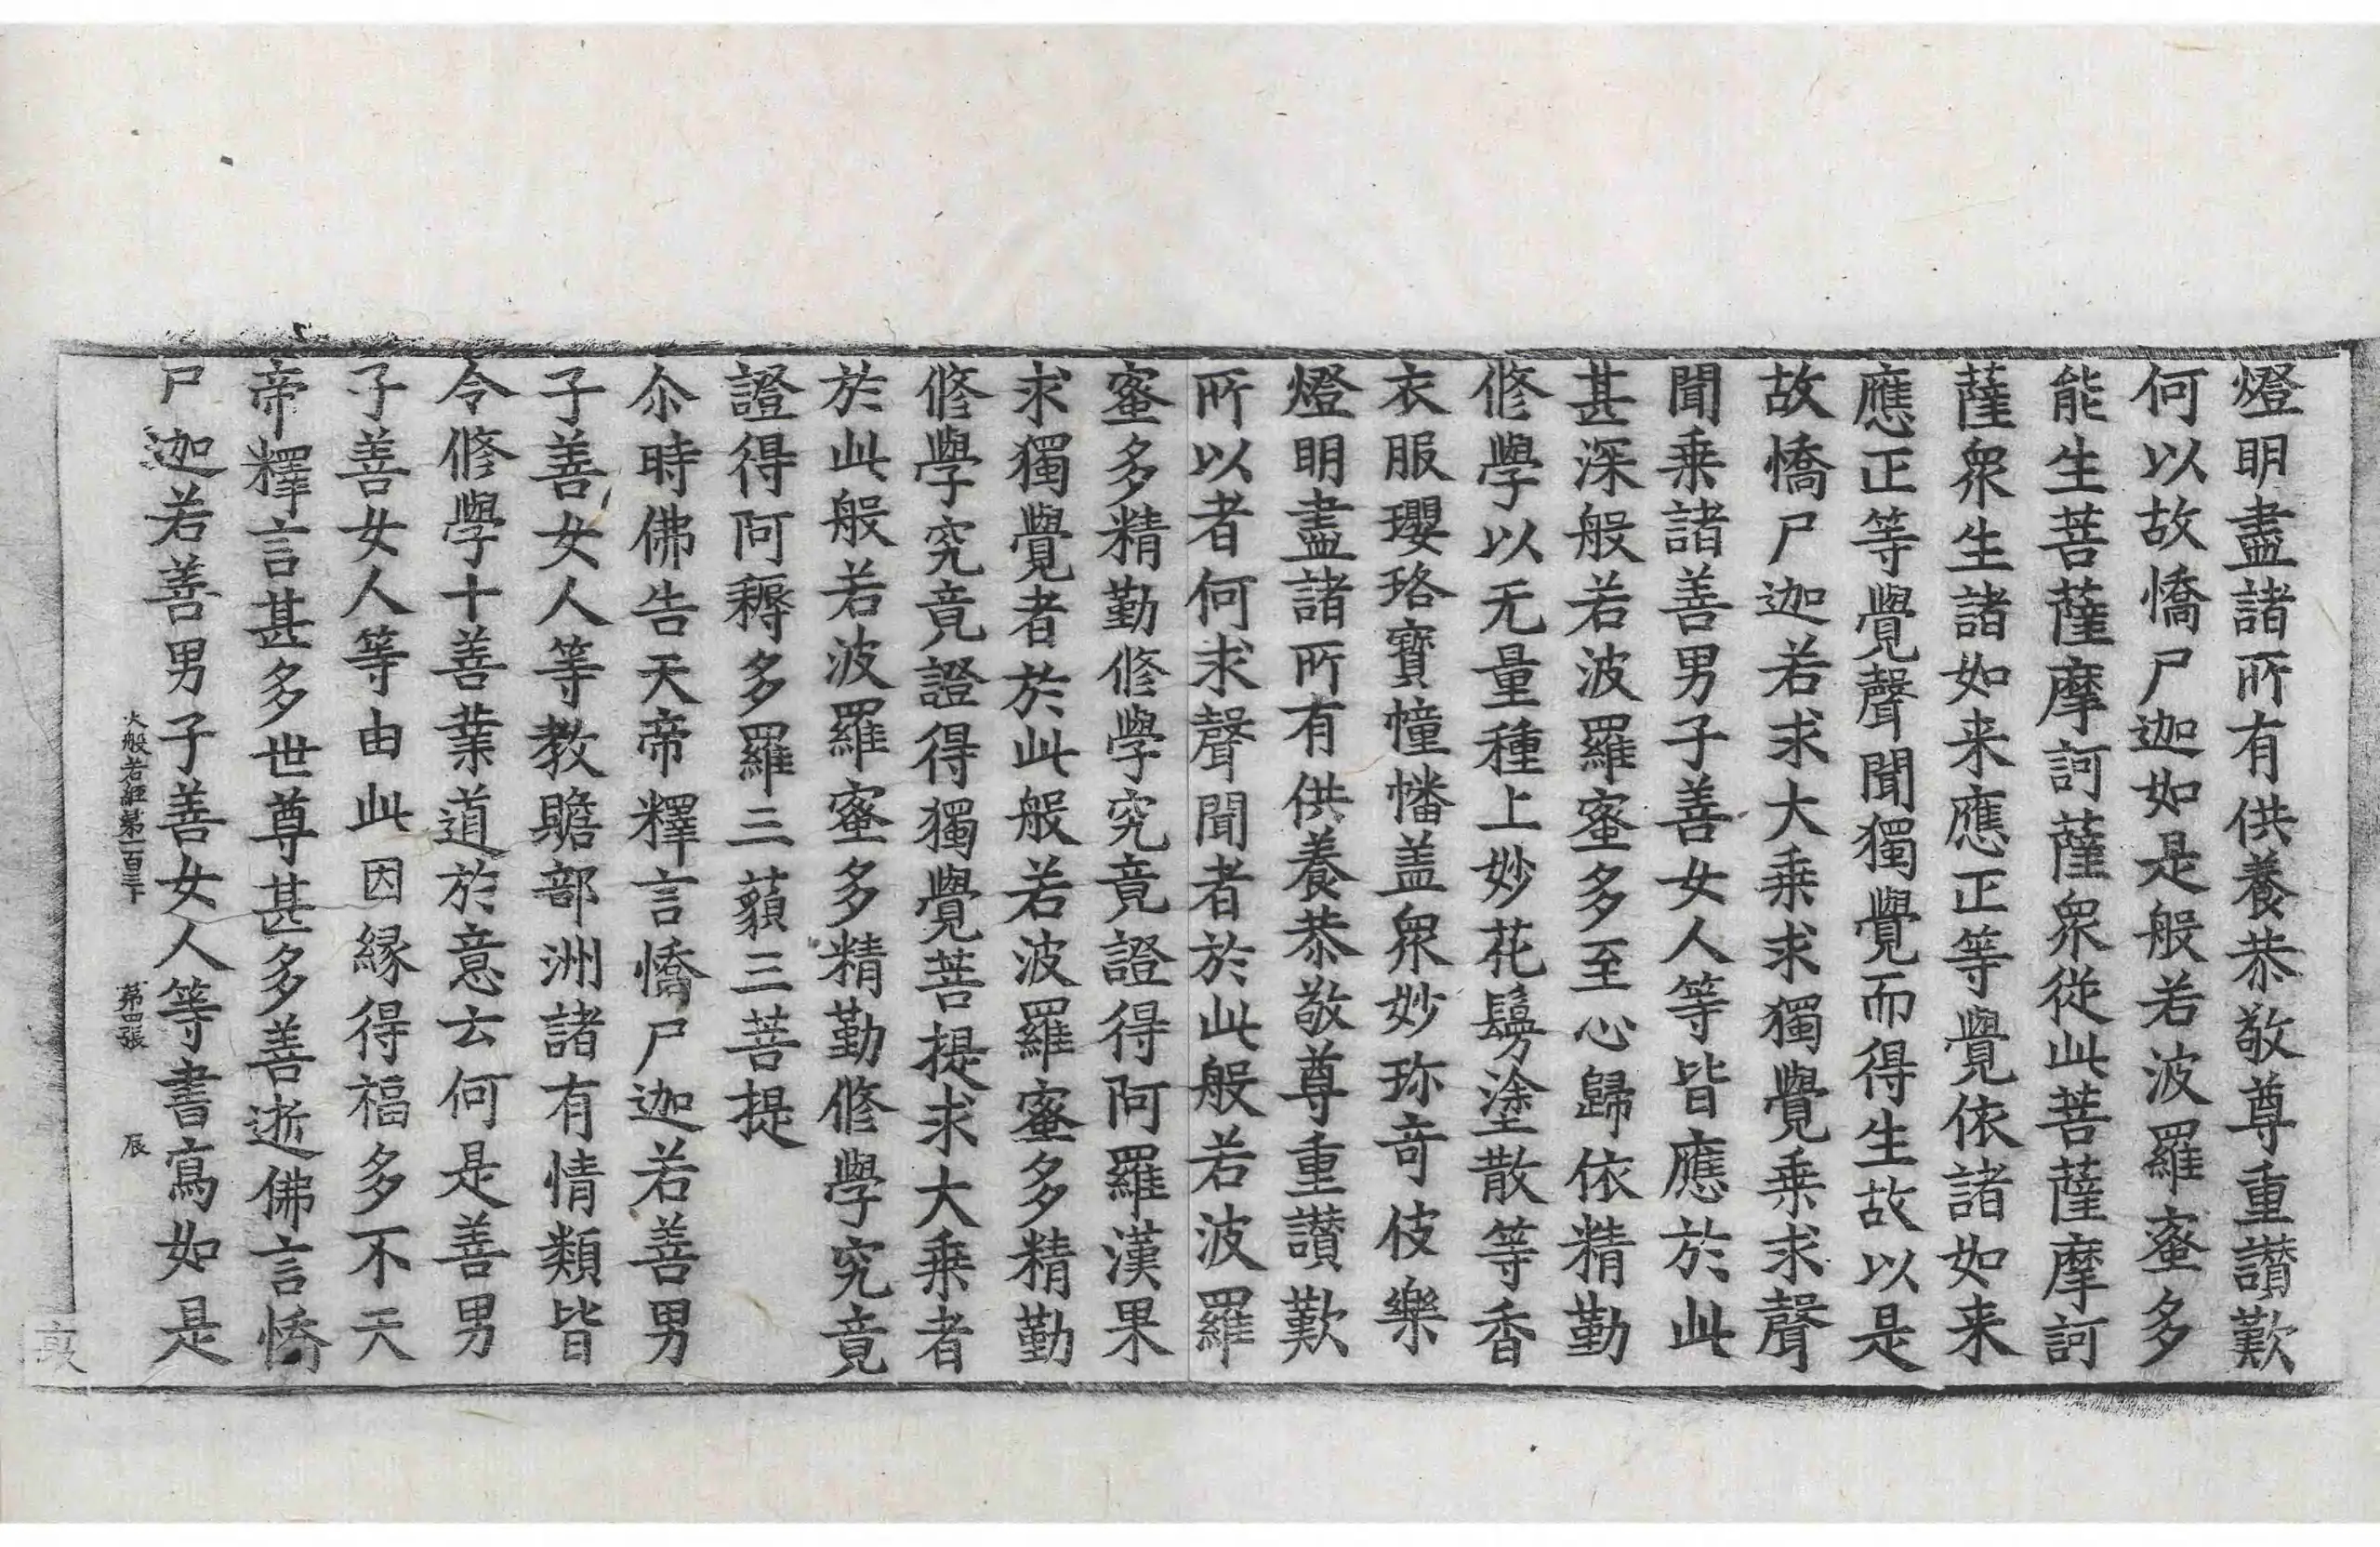 燈明盡諸所有供養恭敬尊重讃歎
何以故憍尸迦如是般若波羅蜜多
能生菩薩摩訶薩衆從此菩薩摩訶
薩衆生諸如来應正等覺依諸如来
應正等覺聲聞獨覺而得生故以是
故憍尸迦若求大乗求獨覺乗求聲
聞乗諸善男子善女人等皆應於此
甚深般若波羅蜜多至心歸依精勤
修學以无量種上妙花鬘塗散等香
衣服瓔珞寶幢幡盖衆妙珎竒伎樂
燈明盡諸所有供養恭敬尊重讃歎
所以者何求聲聞者於此般若波羅
蜜多精勤修學究竟證得阿羅漢果
求獨覺者於此般若波羅蜜多精勤
修學究竟證得獨覺菩提求大乗者
於此般若波羅蜜多精勤修學究竟
證得阿耨多羅三藐三菩提
尒時佛告天帝釋言憍尸迦若善男
子善女人等教贍部洲諸有情類皆
令修學十善業道於意云何是善男
子善女人等由此因縁得福多不天
帝釋言甚多世尊甚多善逝佛言憍
尸迦若善男子善女人等書寫如是
大般若經第一百三十 苐四張 辰